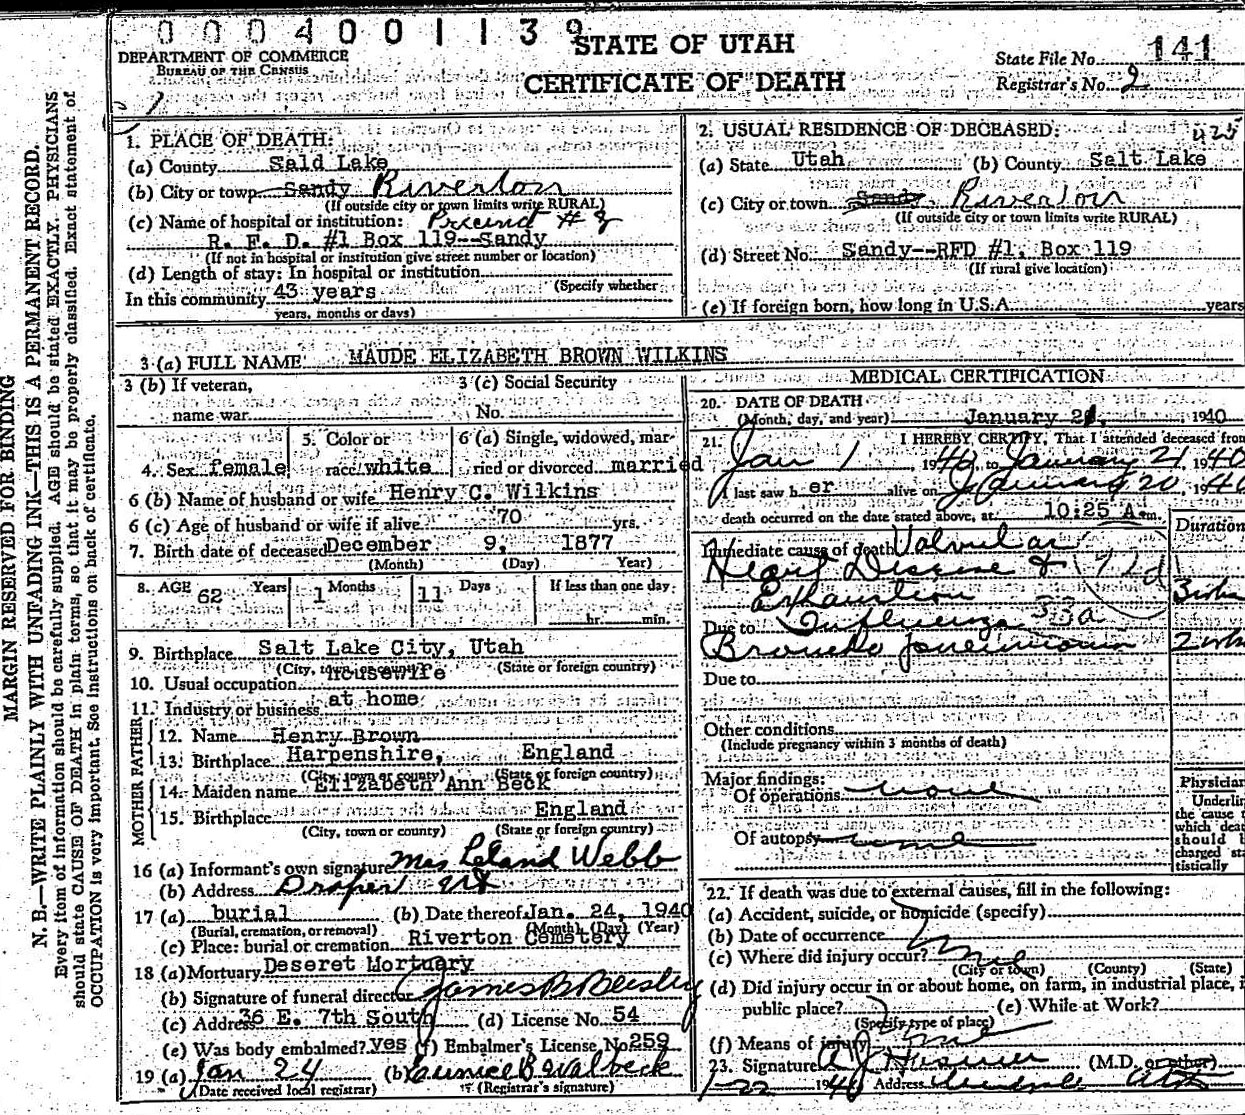 0004001139
DEPARTMENT OF COMMERCE
BUREAU OF THE CENSUS
STATE OF UTAH
CERTIFICATE OF DEATH
State File No. 141
Registrar's No. 2
MARGIN RESERVED FOR BINDING
N. B.—WRITE PLAINLY WITH UNFADING INK—THIS IS A PERMANENT RECORD.
Every item of information should be carefully supplied. AGE should be stated EXACTLY. PHYSICIANS
should state CAUSE OF DEATH in plain terms, so that it may be properly classified. Exact statement of
OCCUPATION is very important. See instructions on back of certificate.
1. PLACE OF DEATH:
(a) County Sald Lake
(b) City or town Sandy Riverton
(If outside city or town limits write RURAL)
(c) Name of hospital or institution: Precinct # 8
R. F. D. #1 Box 119--Sandy
(If not in hospital or institution give street number or location)
(d) Length of stay: In hospital or institution
(Specify whether
In this community 43 years
years, months or days)
2. USUAL RESIDENCE OF DECEASED:
(a) State Utah (b) County Salt Lake
(c) City or town Sandy Riverton
(If outside city or town limits write RURAL)
(d) Street No. Sandy--RFD #1, Box 119
(If rural give location)
(e) If foreign born, how long in U.S.A. years
3 (a) FULL NAME MAUDE ELIZABETH BROWN WILKINS
3 (b) If veteran, 3 (c) Social Security
name war No.
4. Sex female 5. Color or race white 6 (a) Single, widowed, married or divorced married
6 (b) Name of husband or wife Henry C. Wilkins
6 (c) Age of husband or wife if alive 70 yrs.
7. Birth date of deceased December 9, 1877
(Month) (Day) Year)
8. AGE 62 Years 1 Months 11 Days If less than one day
hr. min.
9. Birthplace Salt Lake City, Utah
(City, town or county) (State or foreign country)
10. Usual occupation housewife
11. Industry or business at home
FATHER
12. Name Henry Brown
13. Birthplace Harpenshire, England
(City, town or county) (State or foreign country)
MOTHER
14. Maiden name Elizabeth Ann Beck
15. Birthplace England
(City, town or county) (State or foreign country)
16 (a) Informant's own signature Mrs Leland Webb
(b) Address Draper Ut
17 (a) burial (b) Date thereof Jan. 24, 1940
(Burial, cremation, or removal) (Month) (Day) (Year)
(c) Place: burial or cremation Riverton Cemetery
18 (a) Mortuary Deseret Mortuary
(b) Signature of funeral director James B Beesley
(c) Address 36 E. 7th South (d) License No. 54
(e) Was body embalmed? yes (f) Embalmer's License No. 259
19 (a) Jan 24 (b) Eunice B Walbeck
(Date received local registrar) (Registrar's signature)
MEDICAL CERTIFICATION
20. DATE OF DEATH
(Month, day, and year) January 21, 1940
21. I HEREBY CERTIFY, That I attended deceased from
Jan 1, 1940, to January 21, 1940
I last saw her alive on January 20, 1940
death occurred on the date stated above, at 10:25 A.m.
Duration
Immediate cause of death Valvular
Heart Disease & 92d
Exhaustion
Due to Influenza 33a
Broncho pneumonia
Due to
Other conditions
(Include pregnancy within 3 months of death)
Major findings:
Of operations none
Of autopsy none
Physician
Underlin
the cause t
which deat
should b
charged sta
tistically
22. If death was due to external causes, fill in the following:
(a) Accident, suicide, or homicide (specify)
(b) Date of occurrence
(c) Where did injury occur?
(City or town) (County) (State)
(d) Did injury occur in or about home, on farm, in industrial place, i
public place? (e) While at Work?
(Specify type of place)
(f) Means of injury
23. Signature (M.D. or other)
1-22 1940 Address